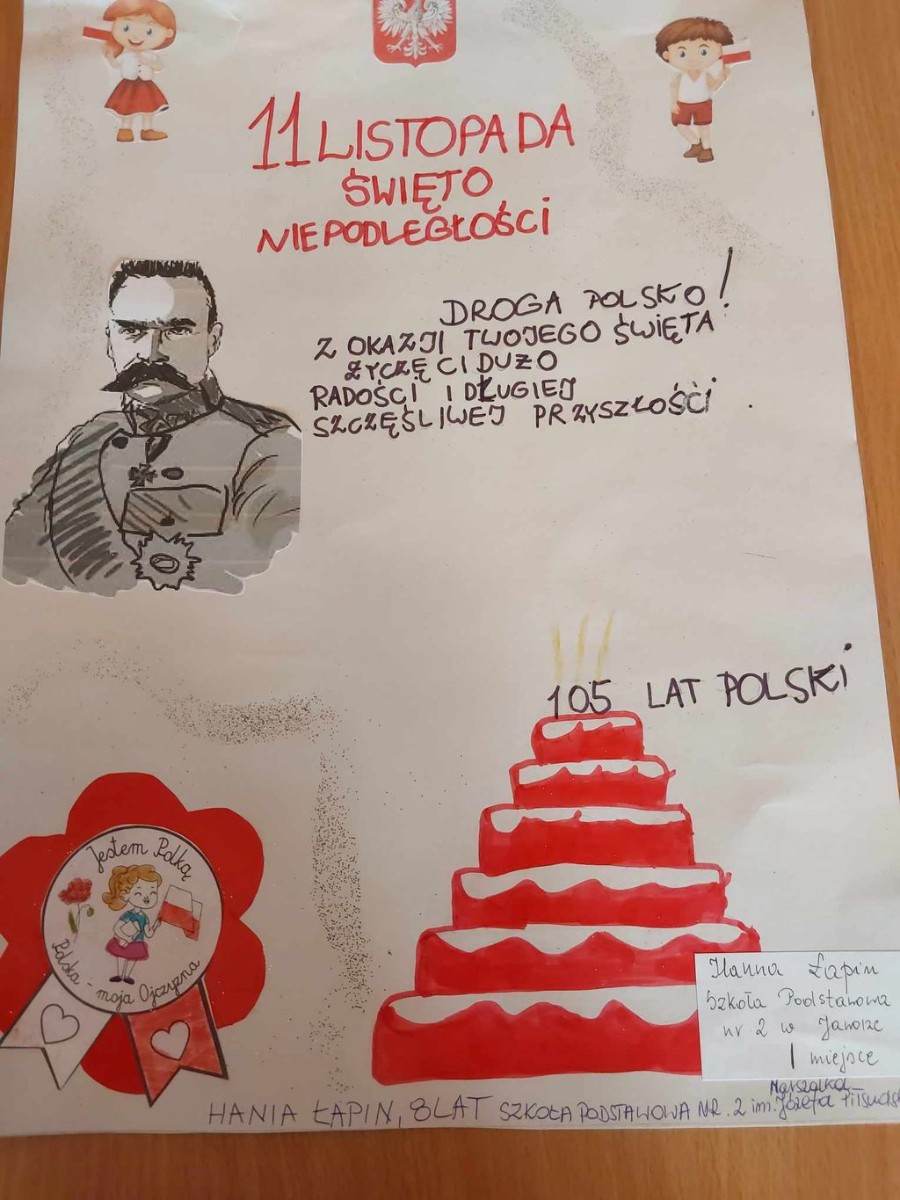 11 LISTOPADA
ŚWIĘTO
NIEPODLEGŁOŚCI
DROGA POLSKO!
Z OKAZJI TWOJEGO ŚWIĘTA
ŻYCZĘ CI DUŻO
RADOŚCI I DŁUGIEJ
SZCZĘŚLIWEJ PRZYSZŁOŚCI.
105 LAT POLSKI
Jestem Polką
Polska - moja Ojczyzna
Hanna Łapin
Szkoła Podstawowa
nr 2 w Jaworze
I miejsce
HANIA ŁAPIN, 8 LAT SZKOŁA PODSTAWOWA NR. 2 im. Marszałka Józefa Piłsudsk